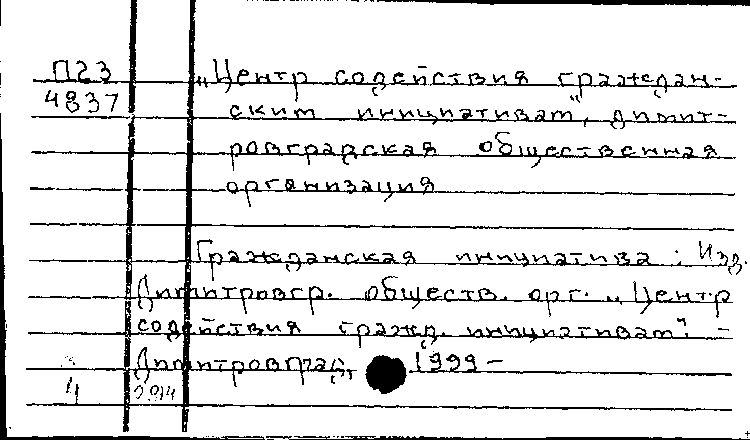 П23 „Центр содействия граждан-
4837 ским инициативам", димит-
ровградская общественная
организация
Гражданская инициатива : Изд.
Димитровгр. обществ. орг. „Центр
содействия гражд. инициативам". –
Димитровград, 1999 –
4